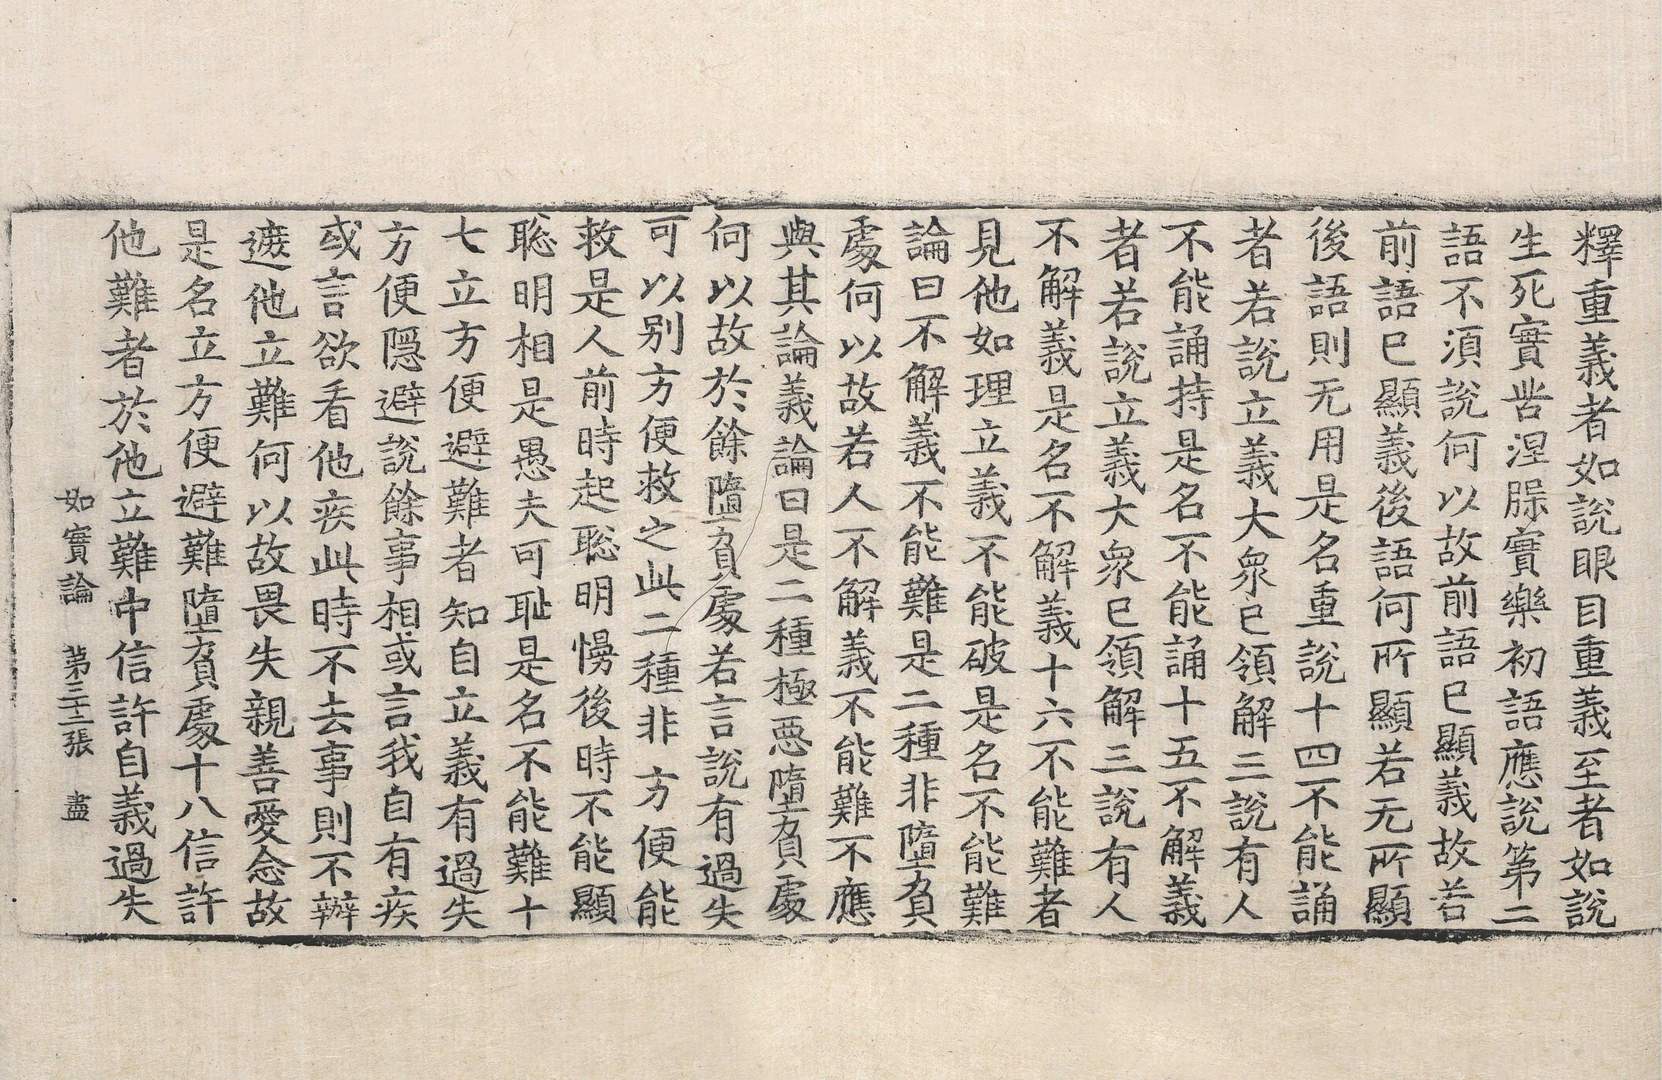 釋重義者如說眼目重義至者如說
生死實苦涅槃實樂初語應說第二
語不須說何以故前語已顯義故若
前語已顯義後語何所顯若无所顯
後語則无用是名重說十四不能誦
者若說立義大衆已領解三說有人
不能誦持是名不能誦十五不解義
者若說立義大衆已領解三說有人
不解義是名不解義十六不能難者
見他如理立義不能破是名不能難
論曰不解義不能難是二種非墮負
處何以故若人不解義不能難不應
與其論義論曰是二種極惡墮負處
何以故於餘墮負處若言說有過失
可以别方便救之此二種非方便能
救是人前時起聡明慢後時不能顯
聡明相是愚夫可耻是名不能難十
七立方便避難者知自立義有過失
方便隱避說餘事相或言我自有疾
或言欲看他疾此時不去事則不辦
遮他立難何以故畏失親善愛念故
是名立方便避難墮負處十八信許
他難者於他立難中信許自義過失
如實論 第三十二張 盡